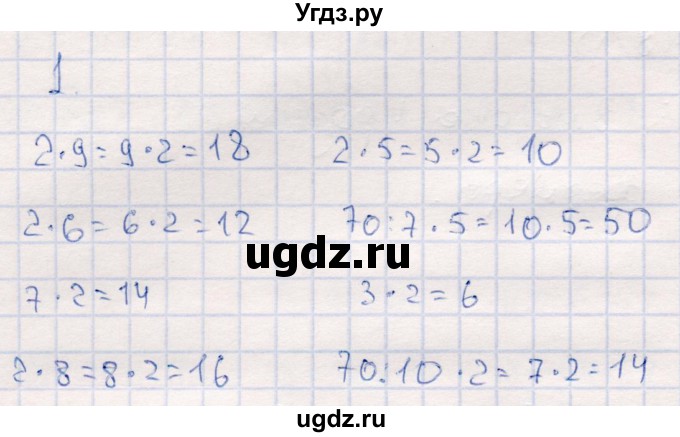 Угдз.ру
1
2·9=9·2=18 2·5=5·2=10
2·6=6·2=12 70:7·5=10·5=50
ugdz.ru
7·2=14 3·2=6
2·8=8·2=16 70:10·2=7·2=14
ugdz.ru